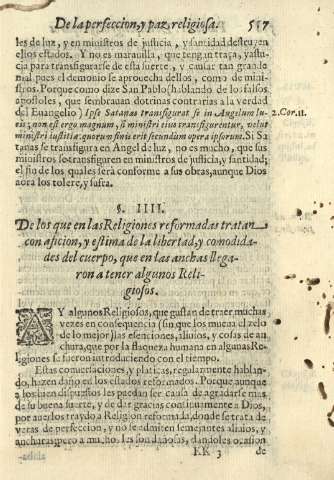 De la perfeccion, y paz religiosa. 557
les de luz, y en ministros de justicia, y santidad destruyen
ellos estados. Y no es marauilla, que tengan traça, y astu-
cia para transfigurarse de esta suerte, y causar tan grande
mal, pues el demonio se aprouecha dellos, como de mini-
stros. Porque como dize San Pablo (hablando de los falsos
apostoles, que sembrauan dotrinas contrarias a la verdad
del Euangelio) Ipse Satanas transfigurat se in Angelum lu-
cis; non est ergo magnum, si ministri eius transfigurentur, velut
ministri iustitiæ: quorum finis erit secundum opera ipsorum. Si Sa
tanas se transfigura en Angel de luz, no es mucho, que sus
ministros se transfiguren en ministros de justicia, y santidad;
el fin de los quales será conforme a sus obras, aunque Dios
aora los tolere, y sufra.
2. Cor. 11.
§. IIII.
De los que en las Religiones reformadas tratan
con aficion, y estima de la libertad, y comodida-
des del cuerpo, que en las anchas llega-
ron a tener algunos Reli-
giosos.
AY algunos Religiosos, que gustan de traer muchas
vezes en consequencia (sin que los mueua el zelo
de lo mejor) las esenciones, aliuios, y cosas de an
chura, que por la flaqueza humana en algunas Re-
ligiones se fueron introduciendo con el tiempo.
Estas conuersaciones, y platicas, regularmente hablan-
do, hazen daño en los estados reformados. Porque aunque
a los bien dispuestos les puedan ser causa de agradarse mas
de su buena suerte, y de dar gracias continuamente a Dios,
por auerlos traydo a Religion reformada, donde se trata de
veras de perfeccion, y no se admiten semejantes aliuios, y
anchuras; pero a muchos les son dañosas, dandoles ocasion
KK 3 de